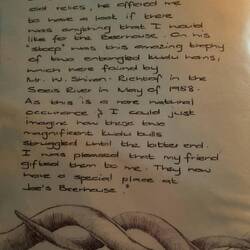 old relics, he offered me
to have a look if there
was anything that I would
like for the Beerhouse. On his
"stoep" was this amazing trophy
of two entangled kudu horns,
which were found by
Mr. W. Shivan - in the
Seeis River in May of 1958.
As this is a rare natural
occurance & I could just
imagine how these two
magnificent kudu bulls
struggled until the bitter end.
I was pleased that my friend
gifted them to me. They now
have a special place at
Joe's Beerhouse."